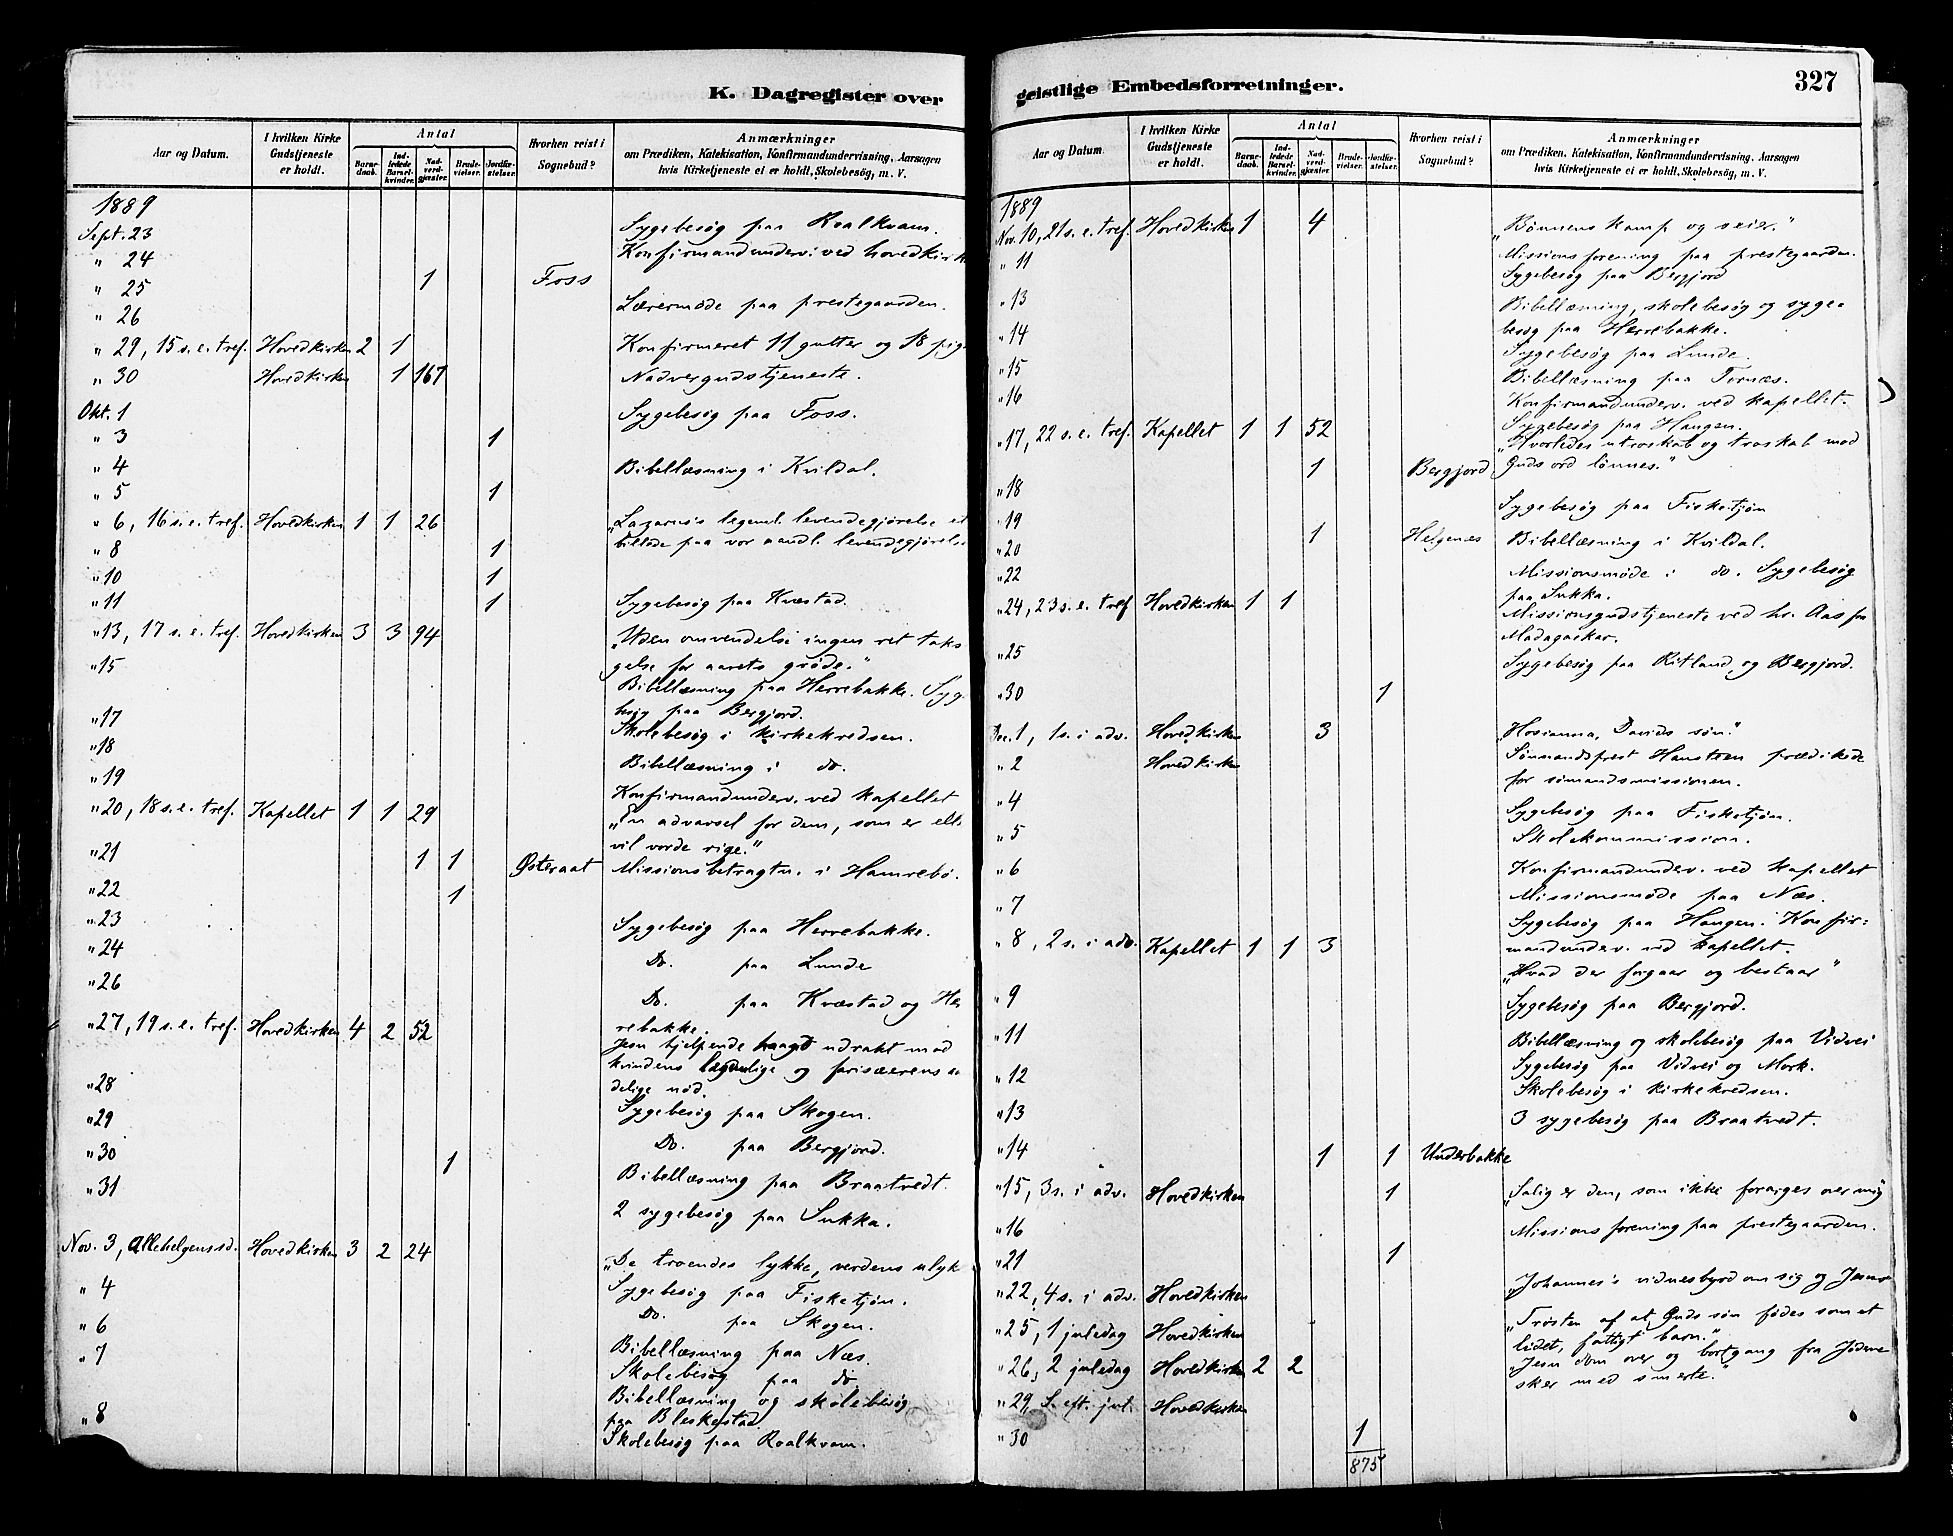 K. Dagregister over
Aar og Datum.
I hvilken Kirke Gudstjeneste er holdt.
Antal
Barnedaab.
Indledede Barselkvinder.
Nadverdgjæster.
Brudevielser.
Jordfæstelser.
Hvorhen reist i Sognebud?
Anmærkninger
om Prædiken, Katekisation, Konfirmandundervisning, Aarsagen
hvis Kirketjeneste ei er holdt, Skolebesøg, m. V.
1889
Sept. 23 Sygebesøg paa Roalkvam.
" 24 Konfirmandunderv. ved hovedkirk
" 25 1 Foss
" 26 Lærermøde paa prestegaarden.
" 29, 15 s. e. tref. Hovedkirken 2 1 Konfirmeret 11 gutter og 18 pig
" 30 Hovedkirken 1 167 Nadvergudstjeneste.
Okt. 1 Sygebesøg paa Foss.
" 3 1
" 4 Bibellæsning i Kvildal.
" 5 1
" 6, 16 s. e. tref. Hovedkirken 1 1 26 "Lazarus's legeml. levendegjørelse et
billede paa vor aandl. levendegjørelse
" 8 1
" 10 1
" 11 1 Sygebesøg paa Kvæstad.
" 13, 17 s. e. tref. Hovedkirken 3 3 94 "Uden omvendelse ingen ret tak-
gelse for aarets grøde."
" 15 Bibellæsning paa Herrebakke. Syg
besøg paa Bergjord.
" 17 Skolebesøg i kirkekredsen.
" 18 Bibellæsning i do.
" 19 Konfirmandunderv. ved kapellet
" 20, 18 s. e. tref. Kapellet 1 1 29 "En advarsel for dem, som er ell.
vil vorde rige."
" 21 1 1 Østeraat Missionsbetragtn. i Hamrebø.
" 22 1
" 23 Sygebesøg paa Herrebakke.
" 24 Do. paa Lunde
" 26 Do. paa Kvæstad og Her
rebakke.
" 27, 19 s. e. tref. Hovedkirken 4 2 52 Jesu hjelpende haand udrakt mod
kvindens legemlige og farisæerens
delige nød.
" 28 Sygebesøg paa Skogen.
" 29 Do. paa Bergjord.
" 30 1
" 31 Bibellæsning paa Braatvedt.
2 sygebesøg paa Sukka.
Nov. 3, Allehelgenssd. Hovedkirken 3 2 24 "De troendes lykke, verdens ulyk
" 4 Sygebesøg paa Fisketjøn.
" 6 Do. paa Skogen.
" 7 Bibellæsning paa Næs.
Skolebesøg paa do
" 8 Bibellæsning og skolebesøg
paa Bleskestad.
Skolebesøg paa Roalkvam.
geistlige Embedsforretninger. 327
Aar og Datum.
I hvilken Kirke Gudstjeneste er holdt.
Antal
Barnedaab.
Indledede Barselkvinder.
Nadverdgjæster.
Brudevielser.
Jordfæstelser.
Hvorhen reist i Sognebud?
Anmærkninger
om Prædiken, Katekisation, Konfirmandundervisning, Aarsagen
hvis Kirketjeneste ei er holdt, Skolebesøg, m. V.
1889
Nov. 10, 21 s. e. tref. Hovedkirken 1 4 "Bønnens kamp og seier."
" 11 Missionsforening paa prestegaarden.
Sygebesøg paa Bergjord
" 13 Bibellæsning, skolebesøg og syge-
besøg paa Herrebakke.
" 14 Sygebesøg paa Lunde.
" 15 Bibellæsning paa Tornæs.
" 16 Konfirmandunderv. ved kapellet.
Sygebesøg paa Haugen.
" 17, 22 s. e. tref. Kapellet 1 1 52 "Hvorledes utroskab og troskab mod
Guds ord lønnes."
" 18 1 Bergjord
" 19 Sygebesøg paa Fisketjøn
" 20 1 Helgenæs Bibellæsning i Kvildal.
" 22 Missionsmøde i do. Sygebesøg
paa Sukka.
" 24, 23 s. e. tref Hovedkirken 1 1 Missionsgudstjeneste ved hr. Aas fra
Madagaskar.
" 25 Sygebesøg paa Ritland og Bergjord.
" 30 1
Dec. 1, 1 s. i adv. Hovedkirken 3 "Hosianna, Davids søn."
" 2 Hovedkirken Sømandsprest Hansteen prædikede
for sømandsmissionen.
" 4 Sygebesøg paa Fisketjøn.
" 5 Skolekommission.
" 6 Konfirmandunderv. ved kapellet
" 7 Missionsmøde paa Næs.
Sygebesøg paa Haugen. Konfir-
mandunderv. ved kapellet.
" 8, 2 s. i adv. Kapellet 1 1 3 "Hvad der forgaar og bestaar"
" 9 Sygebesøg paa Bergjord.
" 11 Bibellæsning og skolebesøg paa Vidvei
" 12 Sygebesøg paa Vidvei og Mork.
Skolebesøg i kirkekredsen.
" 13 3 sygebesøg paa Braatvedt.
" 14 1 1 Underbakke
" 15, 3 s. i adv. Hovedkirken 1 "Salig er den, som ikke forarges over mig
" 16 Missionsforening paa prestegaarden.
" 21 1
" 22, 4 s. i adv. Hovedkirken "Johannes's vidnesbyrd om sig og Jesus
" 25, 1 juledag Hovedkirken "Trøsten af at Guds søn fødes som et
lidet, fattigt barn."
" 26, 2 juledag Hovedkirken 2 2 "Jesu dom over og bortgang fra Jøderne
sker med smerte."
" 29, S. eft. jul. Hovedkirken
" 30 1
875